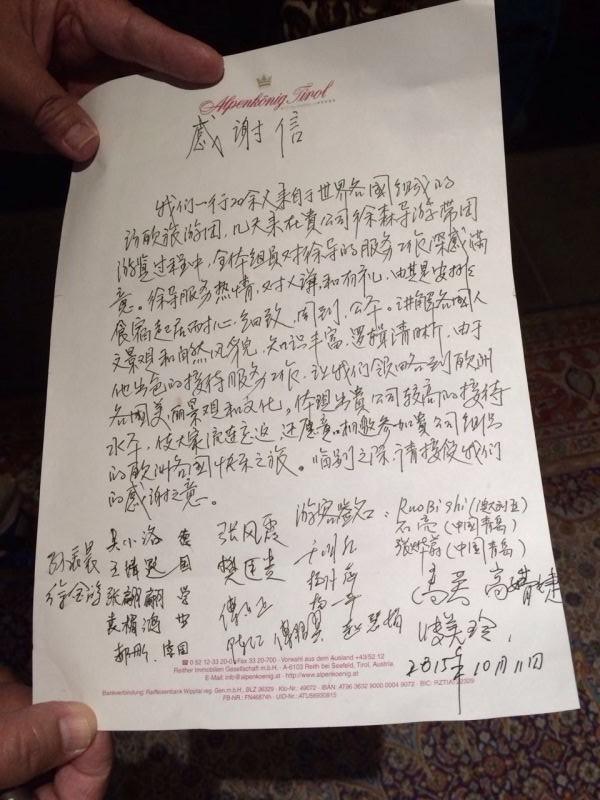 Alpenkönig Tirol
感谢信
我们一行20余人来自于世界各国组成的
访欧旅游团,几天来在貴公司徐森导游带团
游览过程中,全体组员对徐导的服务工作深感满
意。徐导服务热情,对人谦和有礼,由其是安排
食宿起居耐心、细致、周到、公平。讲解各國人
文景观和自然风貌,知识丰富,逻辑清晰,由于
他出色的接待服务工作,让我们领略到欧洲
各國美丽景观和文化。体现出貴公司较高的接待
水平,使大家流连忘返,还愿意相邀参加貴公司组织
的欧洲各国快乐之旅。临别之际,请接受我们
的感谢之意。
游客签名:RuoBi Shi(澳大利亚)
石亮(中国青岛)
(中国青岛)
张风霞
高英
2015年10月11日
☎ 0 52 12-33 20-0, Fax 33 20-700 · Vorwahl aus dem Ausland +43/52 12
Reither Immobilien Gesellschaft m.b.H. · A-6103 Reith bei Seefeld, Tirol, Austria.
E-Mail: info@alpenkoenig.at · http://www.alpenkoenig.at
Bankverbindung: Raiffeisenbank Wipptal reg. Gen.m.b.H., BLZ 36329 · Kto-Nr.: 49072 · IBAN: AT96 3632 9000 0004 9072 · BIC:
FB-NR.: FN46874h · UID-Nr.: ATU56930815